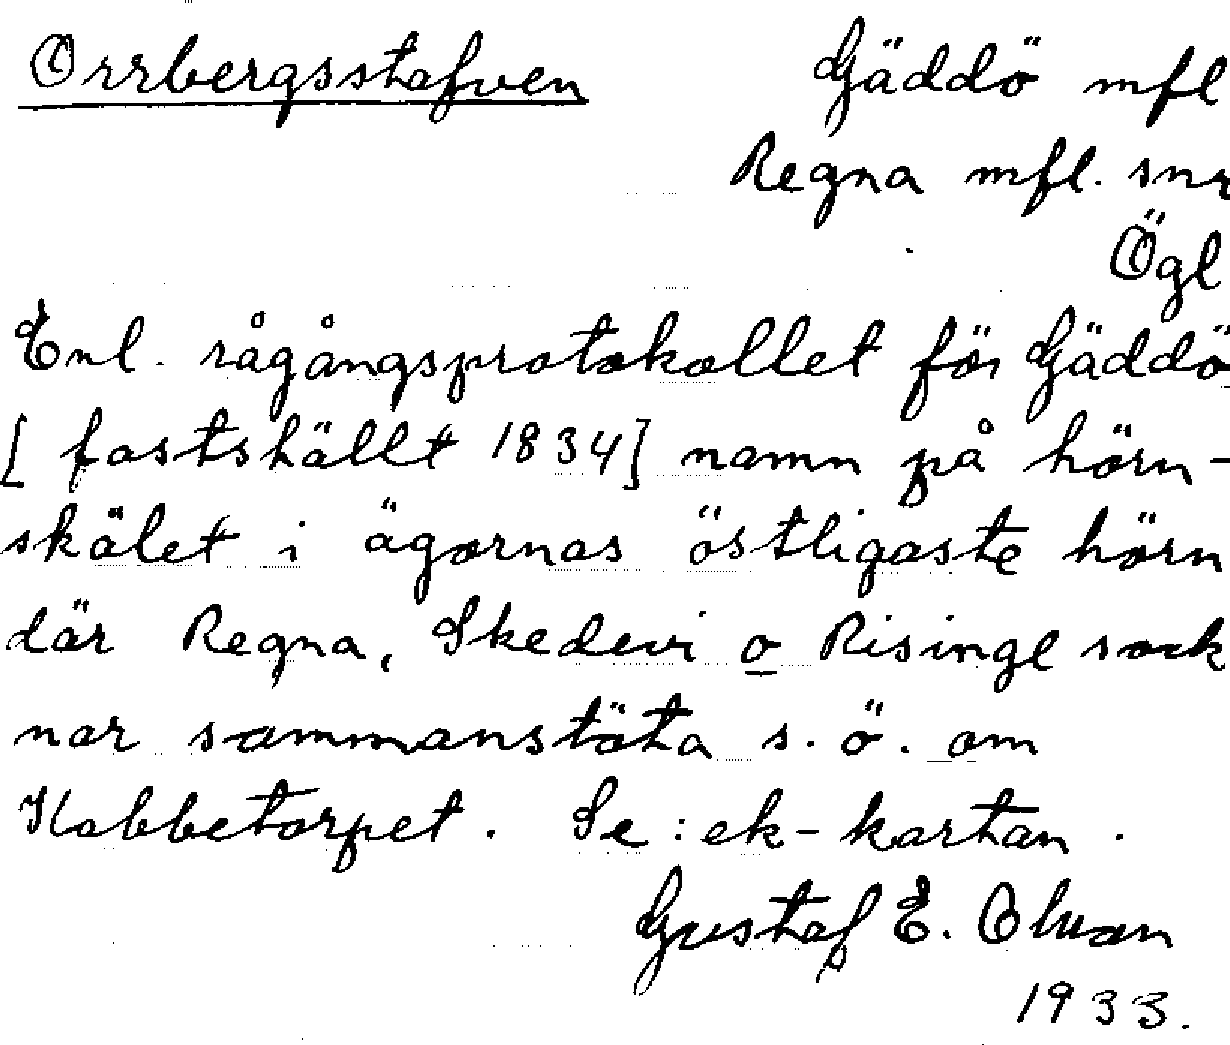 Orrbergsstafven Gäddö mfl
Regna mfl. snr
Ögl
Enl. rågångsprotokollet för Gäddö
[fastskällt 1834] namn på hörn-
skälet i ägornas östligaste hörn
där Regna, Skedevi o Risinge sock
nar sammanstöta s. ö. om
Kabbetorpet. Se: ek-kartan.
Gustaf E.
1933.